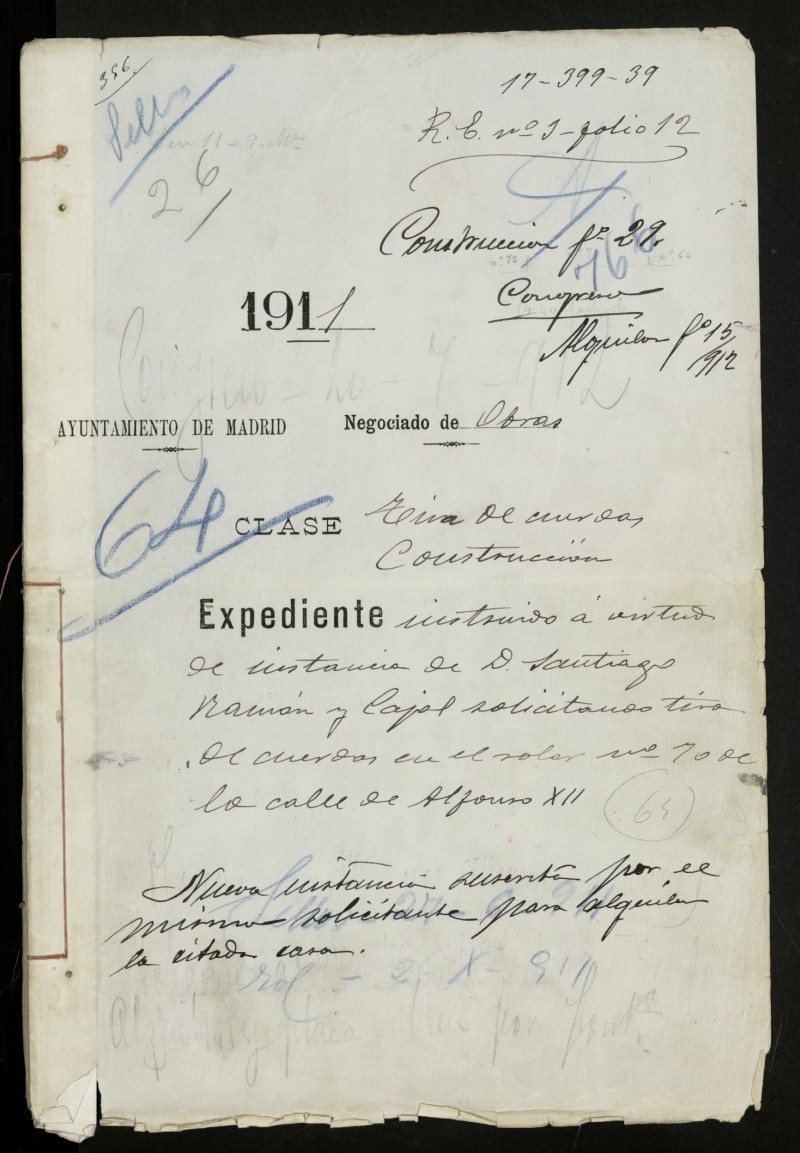 356.
17-399-39
Sellos
R.E. nº 3-Julio 12
26
Construccion fº 29.
766
Congreso
1911
Alquilar fº 15/912
Congreso - 20 - 7 - 912
AYUNTAMIENTO DE MADRID Negociado de Obras
64
CLASE Tira de cuerdas
Construcción
Expediente instruido á virtud
de instancia de D. Santiago
Ramón y Cajal solicitando tira
de cuerdas en el solar nº 70 de
la calle de Alfonso XII
64
Nueva instancia suscrita por el
mismo solicitante para alquilar
la citada casa.
- 2 - X - 911